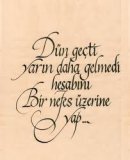 Dün geçti
yarın daha gelmedi
hesabını
Bir nefes üzerine
yap...